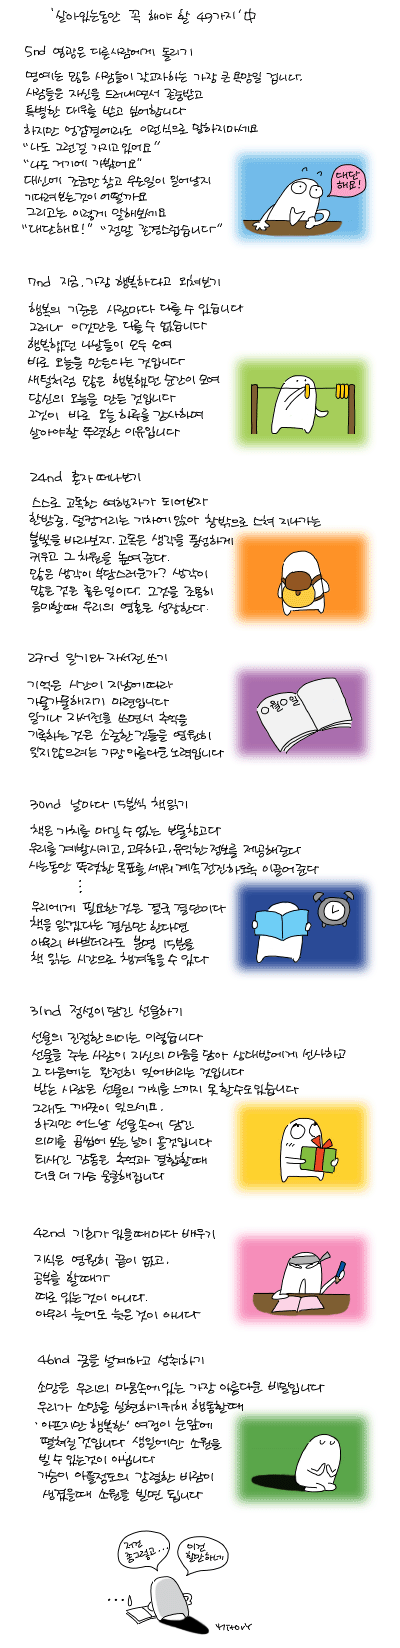 '살아있는동안 꼭 해야 할 49가지' 中
5nd 영광은 다른사람에게 돌리기
명예는 많은 사람들이 갖고자하는 가장 큰 욕망일 겁니다.
사람들은 자신을 드러내면서 존중받고
특별한 대우를 받고 싶어합니다
하지만 엉겁결에라도 이런식으로 말하지마세요
"나도 그런걸 가지고 있어요"
"나도 거기에 가봤어요"
대신에 조금만 참고 무슨일이 일어날지
기다려보는것이 어떨까요
그리고는 이렇게 말해보세요
"대단해요!" "정말 존경스럽습니다"
대단
해요!
7nd 지금, 가장 행복하다고 외쳐보기
행복의 기준은 사람마다 다를 수 있습니다
그러나 이것만은 다를 수 없습니다
행복했던 나날들이 모두 모여
바로 오늘을 만든다는 것입니다
새털처럼 많은 행복했던 순간이 모여
당신의 오늘을 만든 것입니다
그것이 바로 오늘 하루를 감사하며
살아야할 뚜렷한 이유입니다
24nd 혼자 떠나보기
스스로 고독한 여행자가 되어보자
한밤중, 덜컹거리는 기차에 앉아 창밖으로 스쳐 지나가는
불빛을 바라보자. 고독은 생각을 풍성하게
키우고 그 차원을 높여준다.
많은 생각이 부담스러운가? 생각이
많은 것은 좋은 일이다. 그것을 조용히
음미할때 우리의 영혼은 성장한다.
27nd 일기와 자서전 쓰기
기억은 시간이 지남에따라
가물가물해지기 마련입니다
일기나 자서전을 쓰면서 추억을
기록하는 것은 소중한 것들을 영원히
잊지않으려는 가장 아름다운 노력입니다
○월○일
30nd 날마다 15분씩 책읽기
책은 가치를 매길 수 없는 보물창고다
우리를 계발시키고, 고무하고, 유익한 정보를 제공해준다
사는동안 뚜렷한 목표를 세워 계속 정진하도록 이끌어준다
⋮
우리에게 필요한 것은 결국 결단이다
책을 읽겠다는 결심만 한다면
아무리 바쁘더라도 분명 15분을
책 읽는 시간으로 챙겨놓을 수 있다
31nd 정성이 담긴 선물하기
선물의 진정한 의미는 이렇습니다
선물을 주는 사람이 자신의 마음을 담아 상대방에게 선사하고
그 다음에는 완전히 잊어버리는 것입니다
받는 사람은 선물의 가치를 느끼지 못할수도있습니다
그래도 개의치 않으세요.
하지만 어느날 선물속에 담긴
의미를 곱씹어 보는 날이 올것입니다
되새긴 감동은 추억과 결합할때
더욱 더 가슴 뭉클해집니다
42nd 기회가 있을때마다 배우기
지식은 영원히 끝이 없고,
공부를 할때가
따로 있는것이 아니다.
아무리 늦어도 늦은 것이 아니다
46nd 꿈을 설계하고 성취하기
소망은 우리의 마음속에 있는 가장 아름다운 비밀입니다
우리가 소망을 실현하기위해 행동할때
'아프지만 행복한' 여정이 눈앞에
펼쳐질 것입니다 생일에만 소원을
빌 수 있는것이 아닙니다
가슴이 아플정도의 강렬한 바람이
생겼을때 소원을 빌면 됩니다
저건
좀그렇고...
이건
할만하네
...